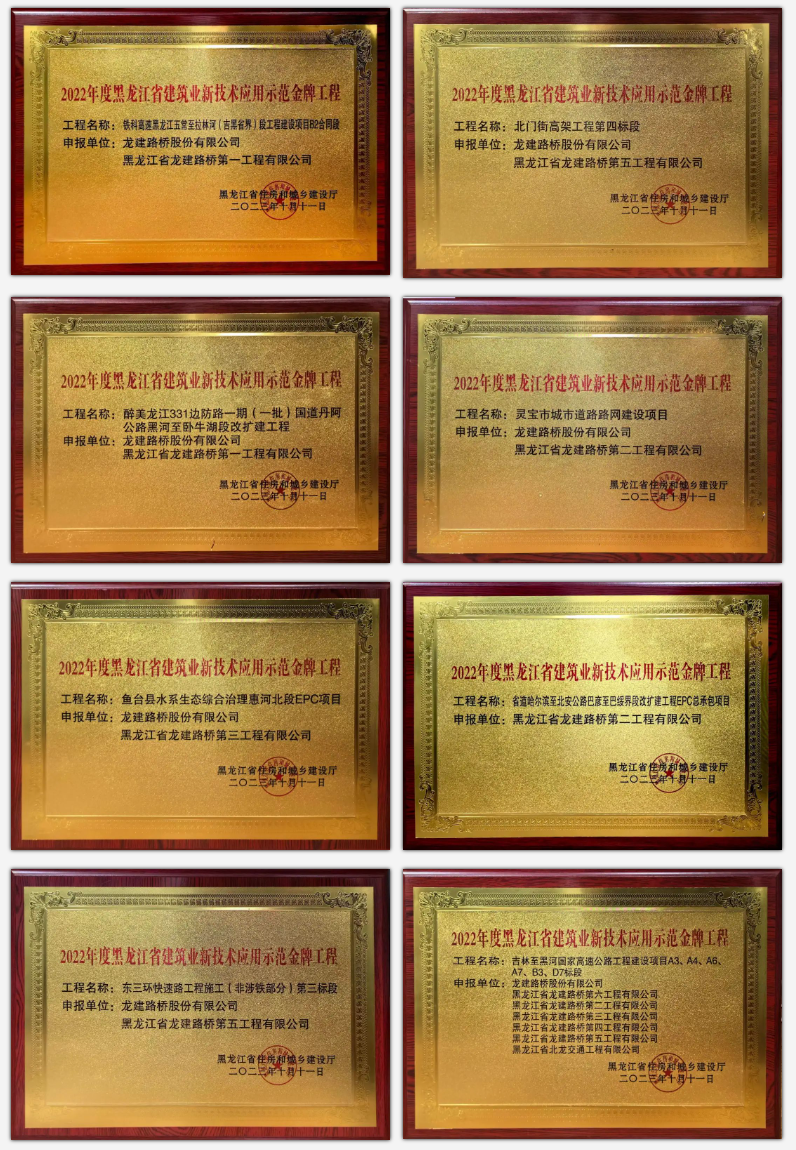 2022年度黑龙江省建筑业新技术应用示范金牌工程
工程名称：铁科高速黑龙江五常至拉林河（吉黑省界）段工程建设项目B2合同段
申报单位：龙建路桥股份有限公司
黑龙江省龙建路桥第一工程有限公司
黑龙江省住房和城乡建设厅
二〇二三年十月十一日
2022年度黑龙江省建筑业新技术应用示范金牌工程
工程名称：北门街高架工程第四标段
申报单位：龙建路桥股份有限公司
黑龙江省龙建路桥第五工程有限公司
黑龙江省住房和城乡建设厅
二〇二三年十月十一日
2022年度黑龙江省建筑业新技术应用示范金牌工程
工程名称：醉美龙江331边防路一期（一批）国道丹阿
公路黑河至卧牛湖段改扩建工程
申报单位：龙建路桥股份有限公司
黑龙江省龙建路桥第一工程有限公司
黑龙江省住房和城乡建设厅
二〇二三年十月十一日
2022年度黑龙江省建筑业新技术应用示范金牌工程
工程名称：灵宝市城市道路路网建设项目
申报单位：龙建路桥股份有限公司
黑龙江省龙建路桥第二工程有限公司
黑龙江省住房和城乡建设厅
二〇二三年十月十一日
2022年度黑龙江省建筑业新技术应用示范金牌工程
工程名称：鱼台县水系生态综合治理惠河北段EPC项目
申报单位：龙建路桥股份有限公司
黑龙江省龙建路桥第三工程有限公司
黑龙江省住房和城乡建设厅
二〇二三年十月十一日
2022年度黑龙江省建筑业新技术应用示范金牌工程
工程名称：省道哈尔滨至北安公路巴彦至巴绥界段改扩建工程EPC总承包项目
申报单位：黑龙江省龙建路桥第二工程有限公司
黑龙江省住房和城乡建设厅
二〇二三年十月十一日
2022年度黑龙江省建筑业新技术应用示范金牌工程
工程名称：东三环快速路工程施工（非涉铁部分）第三标段
申报单位：龙建路桥股份有限公司
黑龙江省龙建路桥第五工程有限公司
黑龙江省住房和城乡建设厅
二〇二三年十月十一日
2022年度黑龙江省建筑业新技术应用示范金牌工程
工程名称：吉林至黑河国家高速公路工程建设项目A3、A4、A6、
A7、B3、D7标段
申报单位：龙建路桥股份有限公司
黑龙江省龙建路桥第六工程有限公司
黑龙江省龙建路桥第二工程有限公司
黑龙江省龙建路桥第三工程有限公司
黑龙江省龙建路桥第四工程有限公司
黑龙江省龙建路桥第五工程有限公司
黑龙江省北龙交通工程有限公司
黑龙江省住房和城乡建设厅
二〇二三年十月十一日